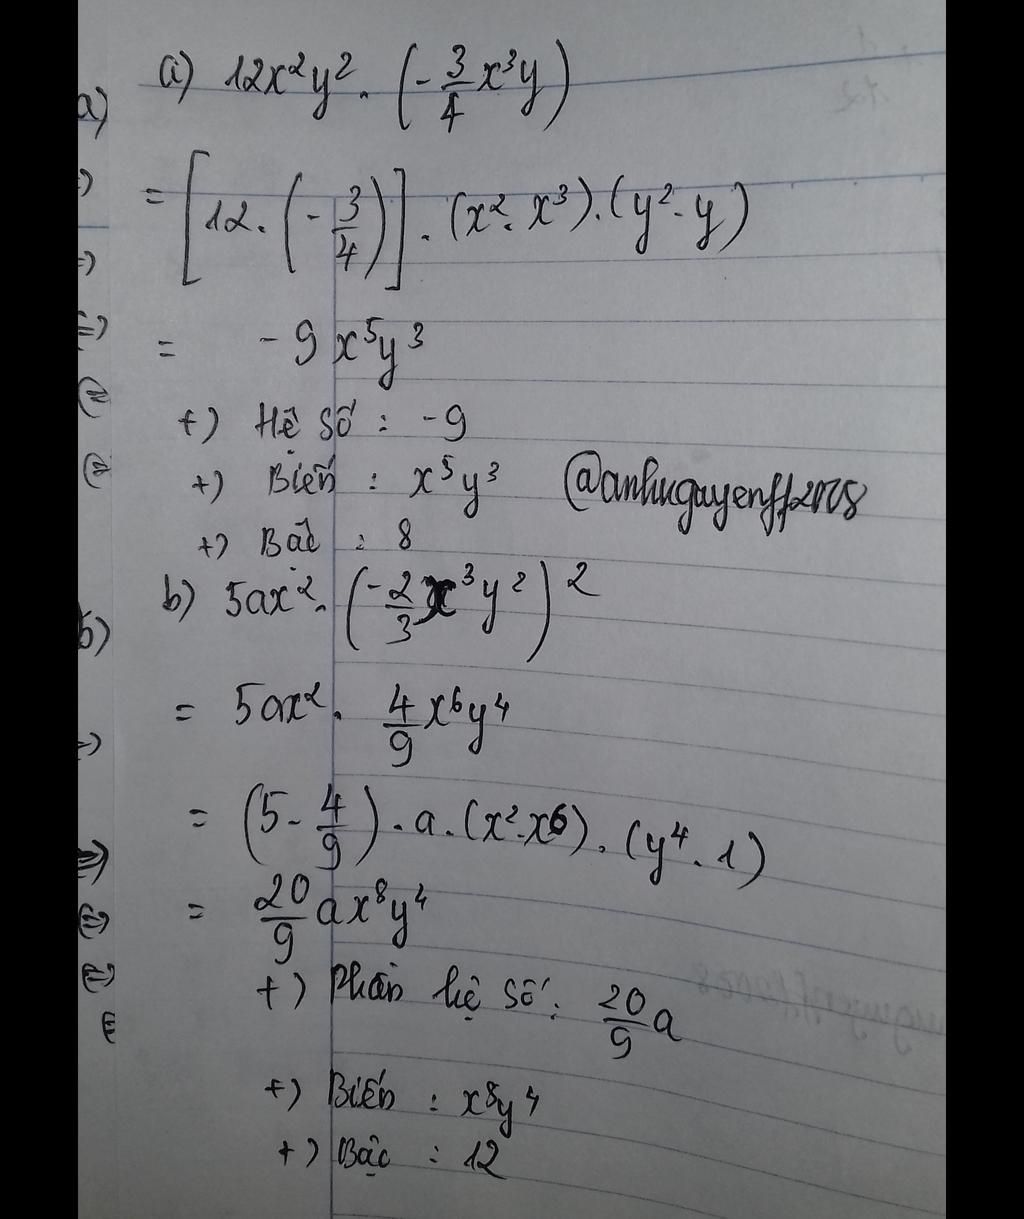 a) 12x²y² . (-3/4 x³y)
= [12 . (-3/4)] . (x² . x³) . (y² . y)
= -9x⁵y³
+) Hệ số : -9
+) Biến : x⁵y³ @anhnguyenff2008
+) Bậc : 8
b) 5ax² . (-2/3 x³y²)²
= 5ax² . 4/9 x⁶y⁴
= (5 . 4/9) . a . (x² . x⁶) . (y⁴ . 1)
= 20/9 ax⁸y⁴
+) Phần hệ số : 20/9 a
+) Biến : x⁸y⁴
+) Bậc : 12